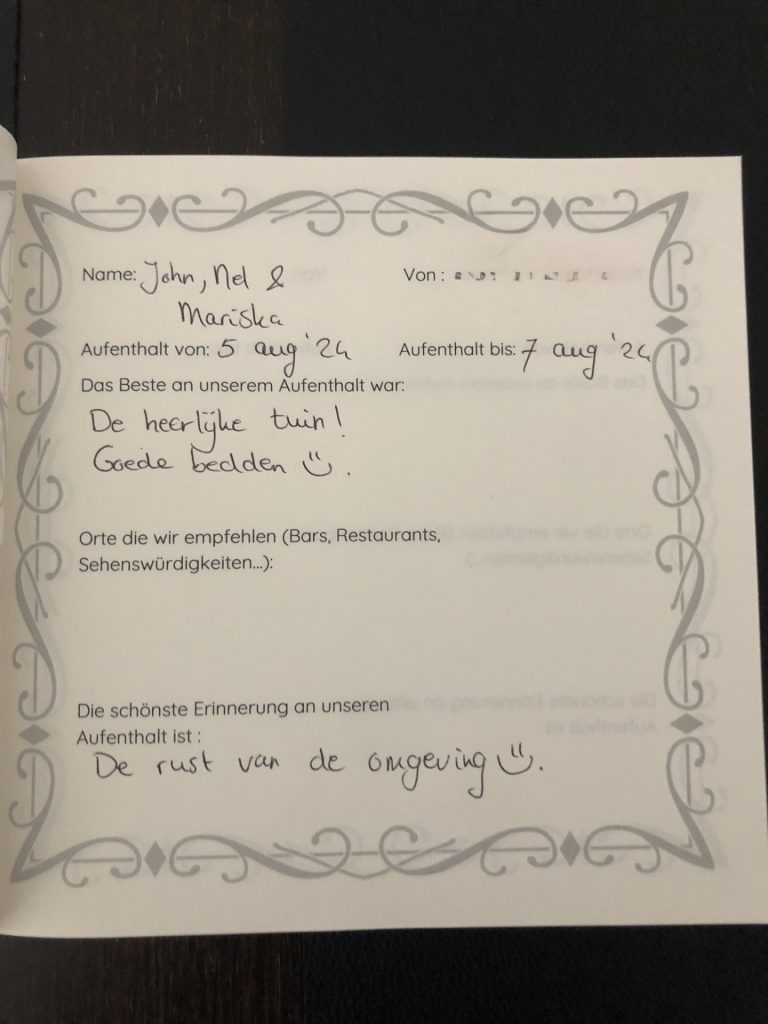 Name: John, Nel &
Mariska
Von :
Aufenthalt von: 5 aug '24
Aufenthalt bis: 7 aug '24
Das Beste an unserem Aufenthalt war:
De heerlijke tuin!
Goede bedden
Orte die wir empfehlen (Bars, Restaurants,
Sehenswürdigkeiten...):
Die schönste Erinnerung an unseren
Aufenthalt ist :
De rust van de omgeving.